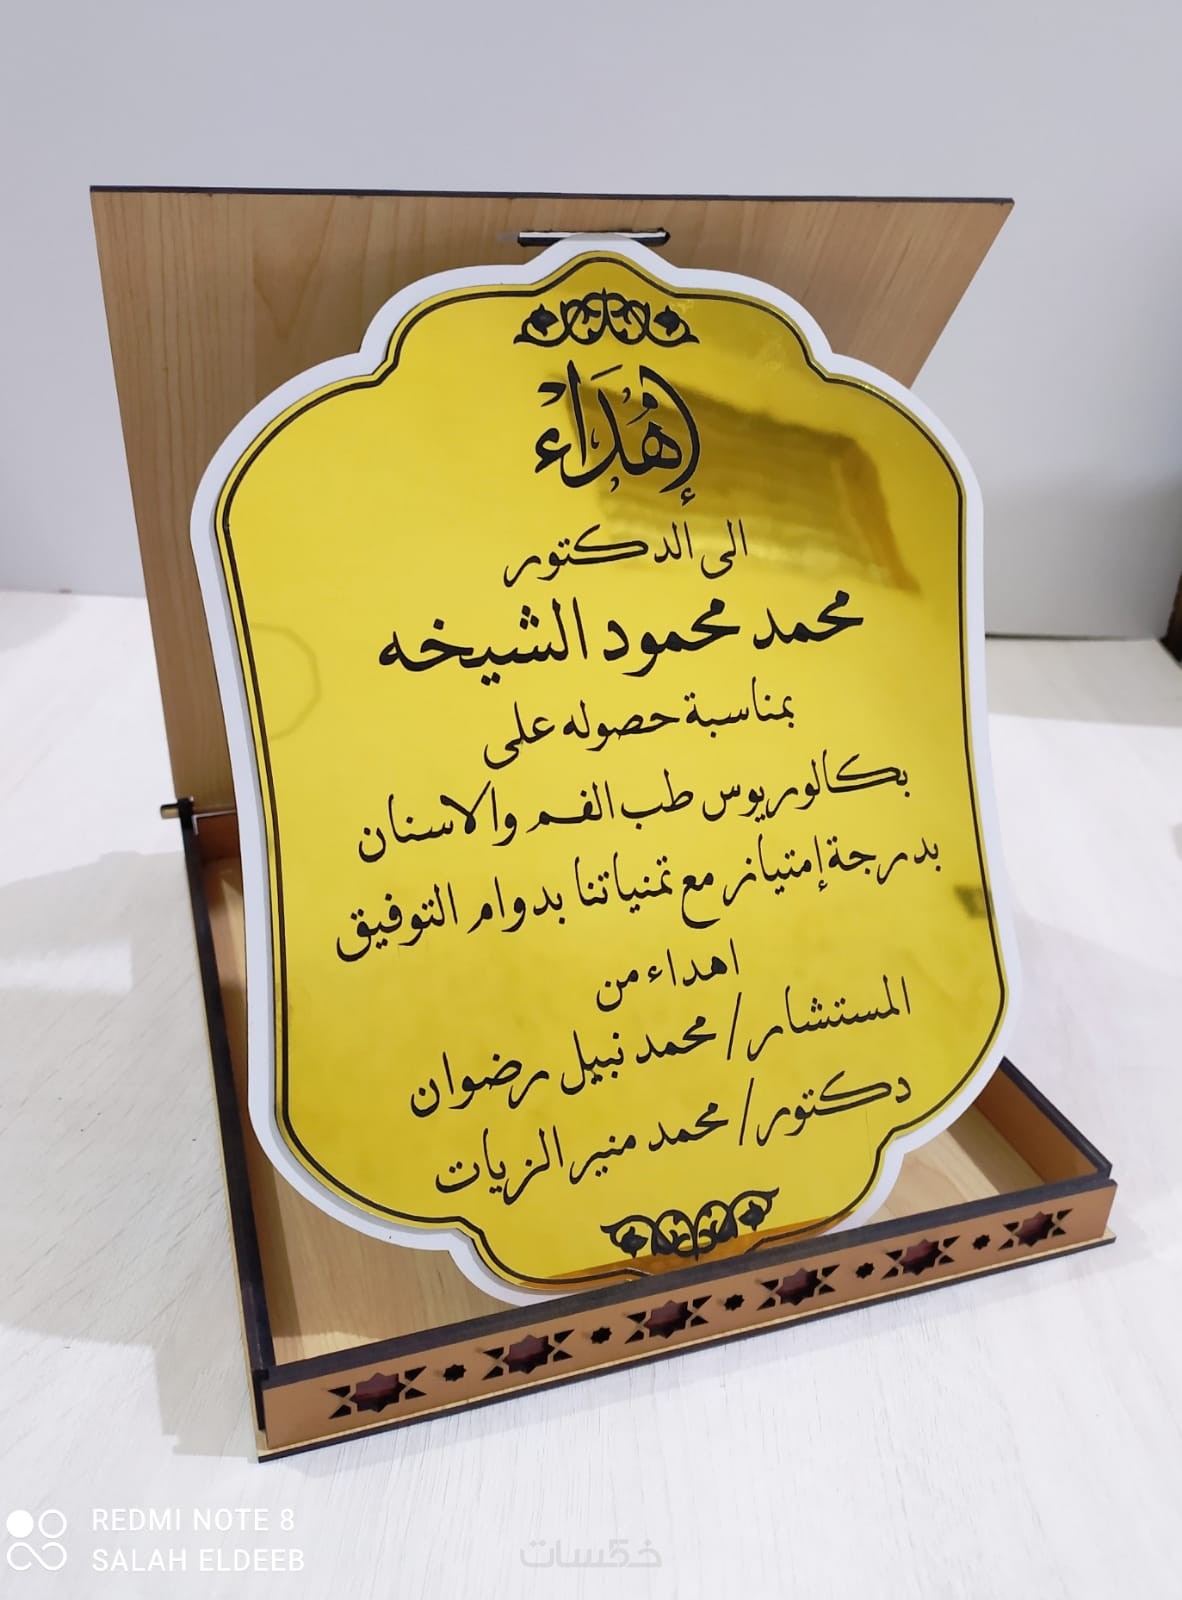 إهُدَاء
الى الدكتور
محمد محمود الشيخه
بمناسبة حصوله على
بكالوريوس طب الفم والاسنان
بدرجة إمتياز مع تمنياتنا بدوام التوفيق
اهداء من
المستشار / محمد نبيل رضوان
دكتور / محمد منير الزيات
REDMI NOTE 8
SALAH ELDEEB
خمسات